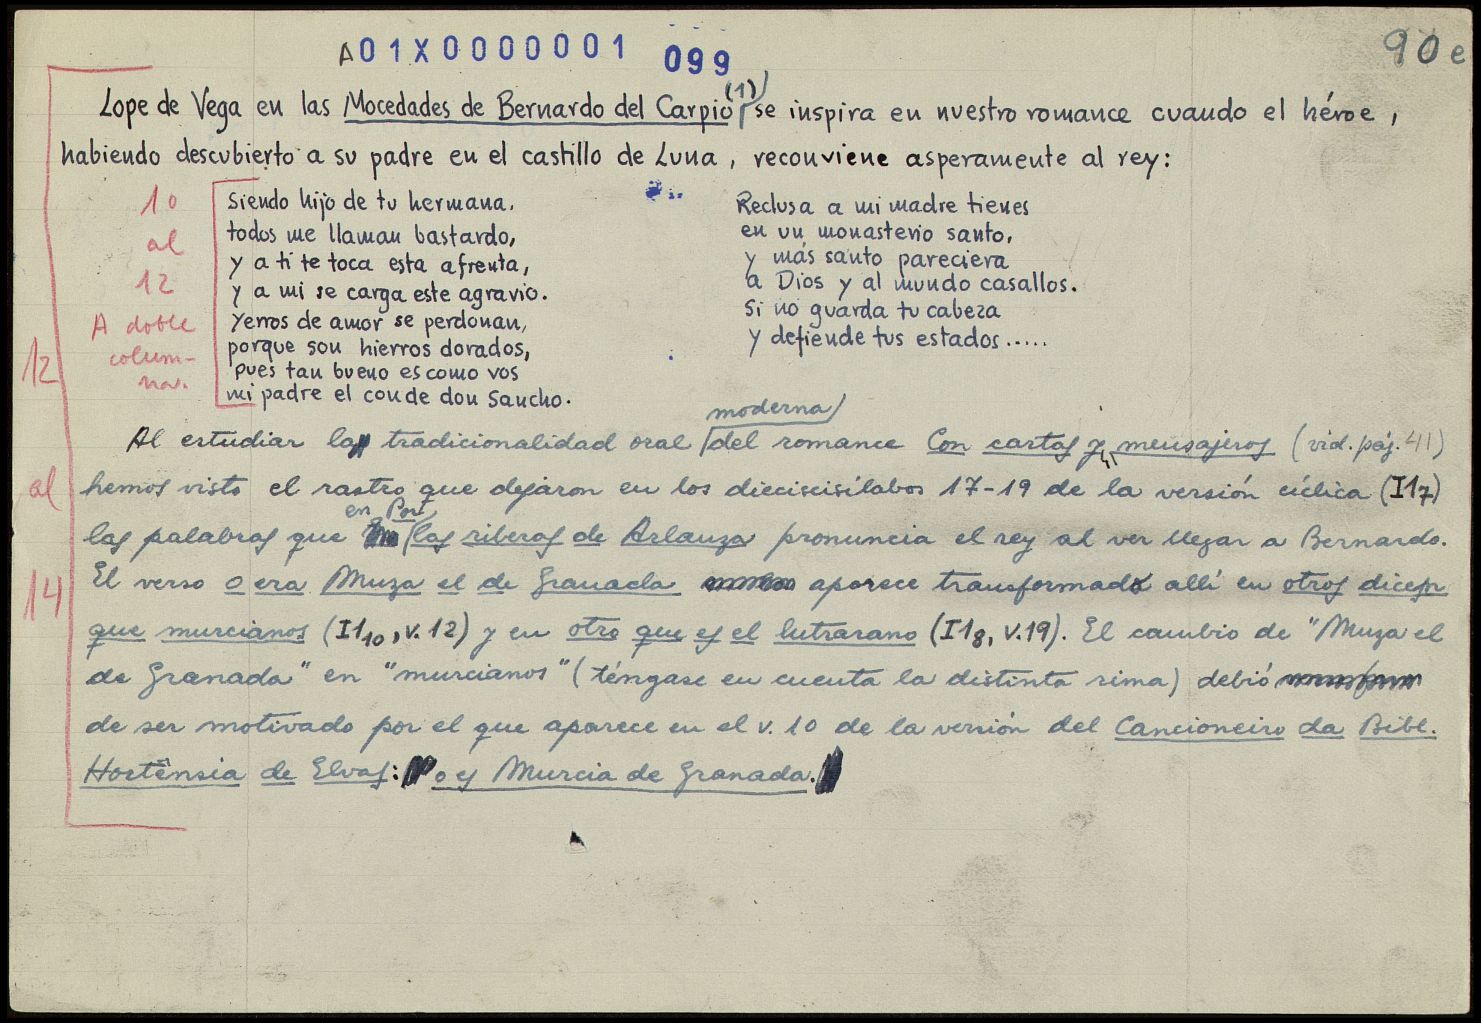 A01X0000001 099
90e
Lope de Vega en las Mocedades de Bernardo del Carpio (1) se inspira en nuestro romance cuando el héroe,
habiendo descubierto a su padre en el castillo de Luna, reconviene asperamente al rey:
10
al
12
A doble
colum-
na.
Siendo hijo de tu hermana.
todos me llaman bastardo,
y a ti te toca esta afrenta,
y a mi se carga este agravio.
Yerros de amor se perdonan,
porque son hierros dorados,
pues tan bueno es como vos
mi padre el conde don Sancho.
Reclusa a mi madre tienes
en un monasterio santo,
y más santo pareciera
a Dios y al mundo casallos.
Si no guarda tu cabeza
y defiende tus estados.....
12
al
14
moderna
Al estudiar la tradicionalidad oral del romance Con cartas y mensajeros (vid. pág. 41)
hemos visto el rastro que dejaron en los dieciseisílabos 17-19 de la versión cíclica (I17)
en Por
las palabras que las riberas de Arlanza pronuncia el rey al ver llegar a Bernardo.
El verso o era Muza el de Granada aparece transformado allí en otros dicen
que murcianos (I110, v. 12) y en otro que es el lutrarano (I18, v.19). El cambio de "Muza el
de Granada" en "murcianos" (téngase en cuenta la distinta rima) debió
de ser motivado por el que aparece en el v. 10 de la versión del Cancioneiro da Bibl.
Hortênsia de Elvas: o es Murcia de Granada.